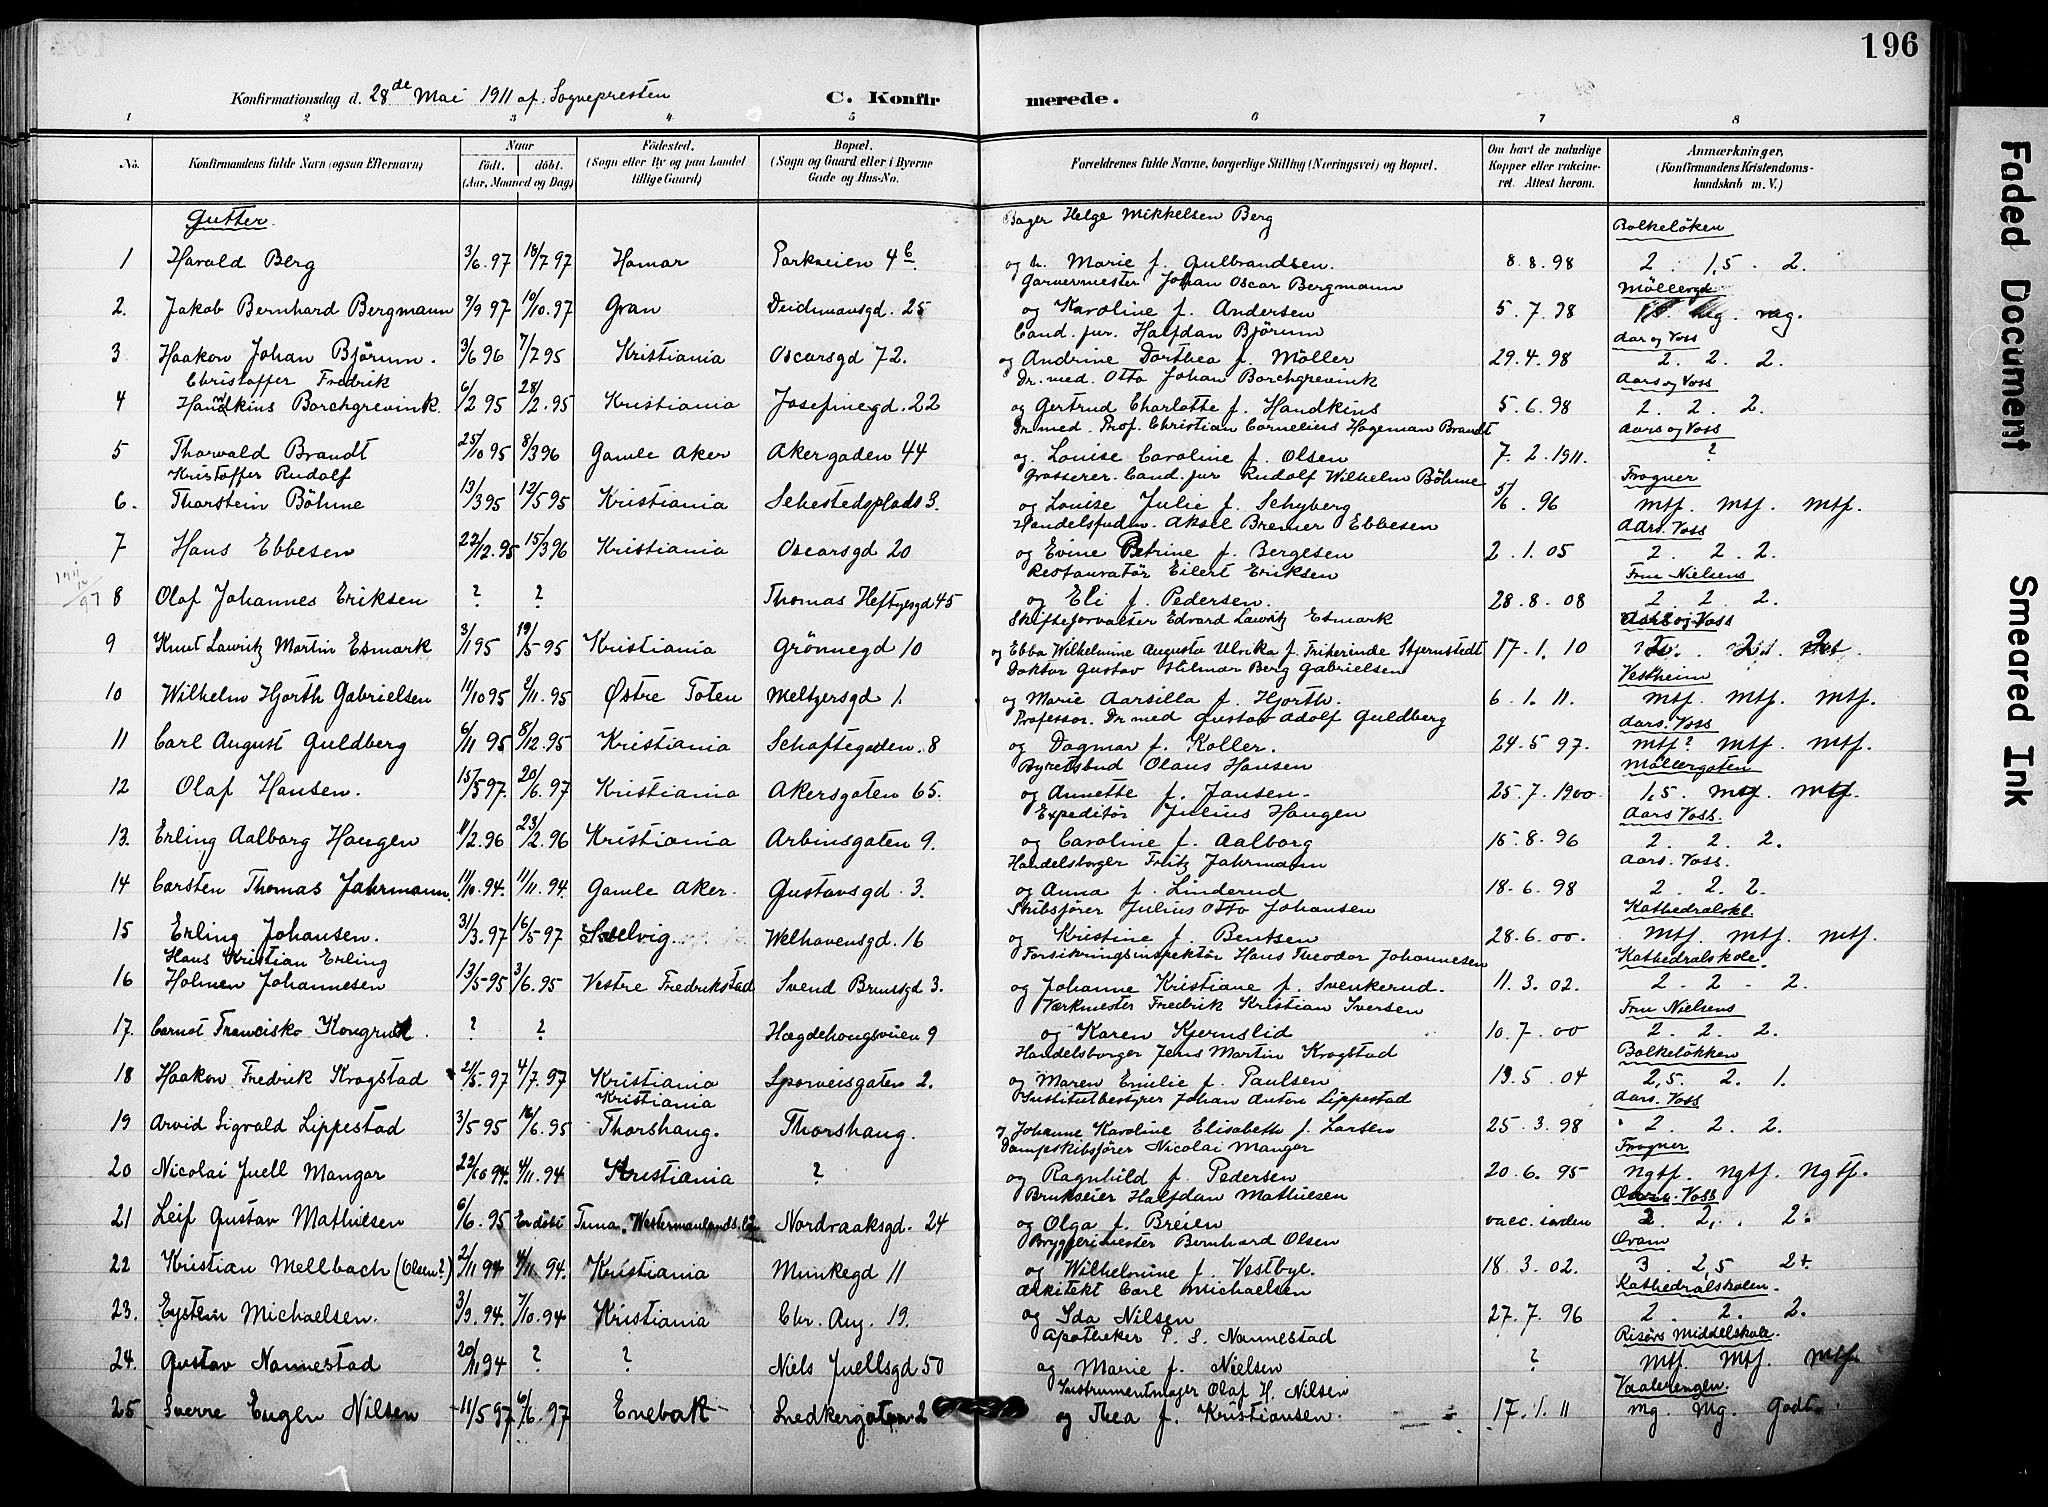 196
Konfirmationsdag d. 28de Mai 1911 af. Sognepresten C. Konfirmerede.
1 2 3 4 5 6 7 8
No. Konfirmandens fulde Navn (ogsaa Efternavn) Naar født. døbt. (Aar, Maaned og Dag) Fødested. (Sogn eller By og paa Landet tillige Gaard) Bopæl. (Sogn og Gaard eller i Byerne Gade og Hus-No. Forældrenes fulde Navne, borgerlige Stilling (Næringsvei) og Bopæl. Om havt de naturlige Kopper eller vakcineret. Attest herom. Anmærkninger, (Konfirmandens Kristendomskundskab m. V.)
Gutter. Bager Helge Mikkelsen Berg Bolkeløken
1 Harald Berg 3/6.97 18/7 97 Hamar Parkveien 4b. og h. Marie f. Gulbrandsen. 8.8.98 2. 1,5. 2.
Garvermester Johan Oscar Bergmann Møllergd.
2. Jakob Bernhard Bergmann 9/9 97 19/10.97 Gran Deichmansgd. 25 og Karoline f. Andersen 5.7.98 mg.
Cand. jur. Halfdan Bjørum Aar og Voss
3 Haakon Johan Bjørum. 3/6 96 7/7 95 Kristiania Oscarsgd 72. og Andrine Dorthea f. Møller 29.4.98 2. 2. 2.
Christoffer Fredrik Dr. med. Otto Johan Borchgrevink Aars og Voss
4 Handkins Borchgrevink. 6/2 95 28/2.95 Kristiania Josefinegd. 22 og Gertrud Charlotte f. Handkins 5.6.98 2. 2. 2.
Dr. med. Prof. Christian Cornelius Hageman Brandt Aars og Voss
5 Thorvald Brandt 25/10 95 8/3 96 Gamle Aker Akergaden 44 og. Louise Caroline f. Olsen 7.2.1911. ?
Kristoffer Rudolf Grosserer. Cand. jur Rudolf Wilhelm Böhme Frogner
6. Thorstein Böhme 13/3 95 12/5 95 Kristiania Sehestedsplads 3. og Louise Julie f. Schyberg 5/6.96 mtf. mtf. mtf.
Handelsfuldm. Aksel Bremer Ebbesen Aars. Voss
7 Hans Ebbesen 22/12.95 15/3 96 Kristiania Oscarsgd 20 og Evine Petrine f. Bergesen 2.1.05 2. 2. 2.
Restauratør Eilert Eriksen Fru Nielsens
8 Olaf Johannes Eriksen ? ? Thomas Heftyesgd 45 og Eli f. Pedersen. 28.8.08 2. 2. 2.
Skifteforvalter Edvard Lauritz Esmark Aars og Voss
9 Knut Lauritz Martin Esmark 3/1 95 19/5 95 Kristiania Grønnegd 10 og Ebba Wilhelmine Augusta Ulrika f. Friherinde Stjernstedt 17.1.10
Doktor Gustav Hilmar Berg Gabrielsen Vestheim
10 Wilhelm Hjorth Gabrielsen 11/10 95 2/11.95 Østre Toten Meltzersgd 1. og Marie Aarsilla f. Hjorth. 6.1.11. mtf. mtf. mtf.
Professor. Dr med Gustav Adolf Guldberg Aars. Voss
11 Carl August Guldberg 6/11 95 8/12.95 Kristiania Schaftegaden. 8 og Dagmar f. Koller. 24.5 97. mtf? mtf. mtf.
Byretsbud Olaus Hansen Møllergaten
12 Olaf Hansen. 15/5 97. 20/6.97 Kristiania Akersgaten 65. og Annette f. Jansen. 25.7.1900 1,5. mtf. mtf.
Expeditør Julius Haugen Aars Voss.
13. Erling Aalborg Haugen 11/2.96 23/2.96 Kristiania Arbinsgaten 9. og Caroline f. Aalborg 15.8.96 2. 2. 2.
Handelsborger Fritz Jahrmann Aars. Voss.
14 Carsten Thomas Jahrmann. 11/10.94. 11/11.94. Gamle Aker. Gustavsgd. 3. og Anna f. Linderud 18.6.98 2. 2. 2.
Skibsfører Julius Otto Johansen Kathedralskl.
15 Erling Johansen. 31/3.97 16/5 97 Svelvig. Welhavensgd. 16 og Kristine f. Bentsen 28.6.00. mtf. mtf. mtf.
Hans Kristian Erling Forsikringsinspektør Hans Theodor Johannesen Kathedralskole.
16 Holmen Johannesen 13/5 95 3/6.95 Vestre Fredrikstad Svend Brunsgd 3. og Johanne Kristiane f. Svenkerud. 11.3.02. 2. 2 - 2.
Værkmester Fredrik Kristian Iversen Fru Nielsens
17. Carnot Francisko Kongrud. ? ? Hægdehougsveien 9 og Karen Kjernslid 10.7.00 2. 2. 2.
Handelsborger Jens Martin Krogstad Bolkeløkken
18 Haakon Fredrik Krogstad 2/5.97 4/7.97 Kristiania Sporveisgaten 2. og Maren Emilie f. Paulsen 13.5.04 2,5. 2. 1.
Kristiania Institutbestyrer Johan Anton Lippestad Aars. Voss
19 Arvid Sigvald Lippestad 3/5 95 16/6.95 Thorshaug. Thorshaug. og Johanne Karoline Elisabeth f. Larsen 25.3.98 2. 2. 2.
Dampskibsfører Nicolai Mangor Frogner
20 Nicolai Juell Mangor 22/10 94. 4/11.94 Kristiania ? og Ragnhild f. Pedersen 20.6.95 Ngtf. Ngtf. Ngtf.
Brukseier Halfdan Mathiesen Voss
21 Leif Gustav Mathiesen 6/6.95 Er døbt Tuna. Westermanlands län Nordraaksgd. 24 og Olga f. Breien vacc. iorden 2. 2. 2.
Bryggerimester Bernhard Olsen Qvam
22 Kristian Mellbach (Olsen?) 2/11 94 4/11.94. Kristiania Munkegd 11 og Wilhelmine f. Vestbye. 18.3.02. 3. 2,5 2+
Arkitekt Carl Michaelsen Kathedralskolen.
23. Eystein Michaelsen. 3/9.94. 7/10.94 Kristiania Chr. Aug. 19. og Ida Nilsen 27.7.96 2. 2. 2.
Apotheker P. S. Nannestad Risørs Middelskole.
24. Gustav Nannestad 20/11 94 ? ? Niels Juellsgd 50 og Marie f. Nielsen ? Mtf. Mtf. Mtf
Instrumentmager Olaf H. Nilsen Vaalerengen.
25 Sverre Eugen Nilsen 11/5 97 6/6.97 Enebak Snedkergaten 2 og Thea f. Kristiansen. 17.1.11 mg. Mg. Godt.
Faded Document
Smeared Ink